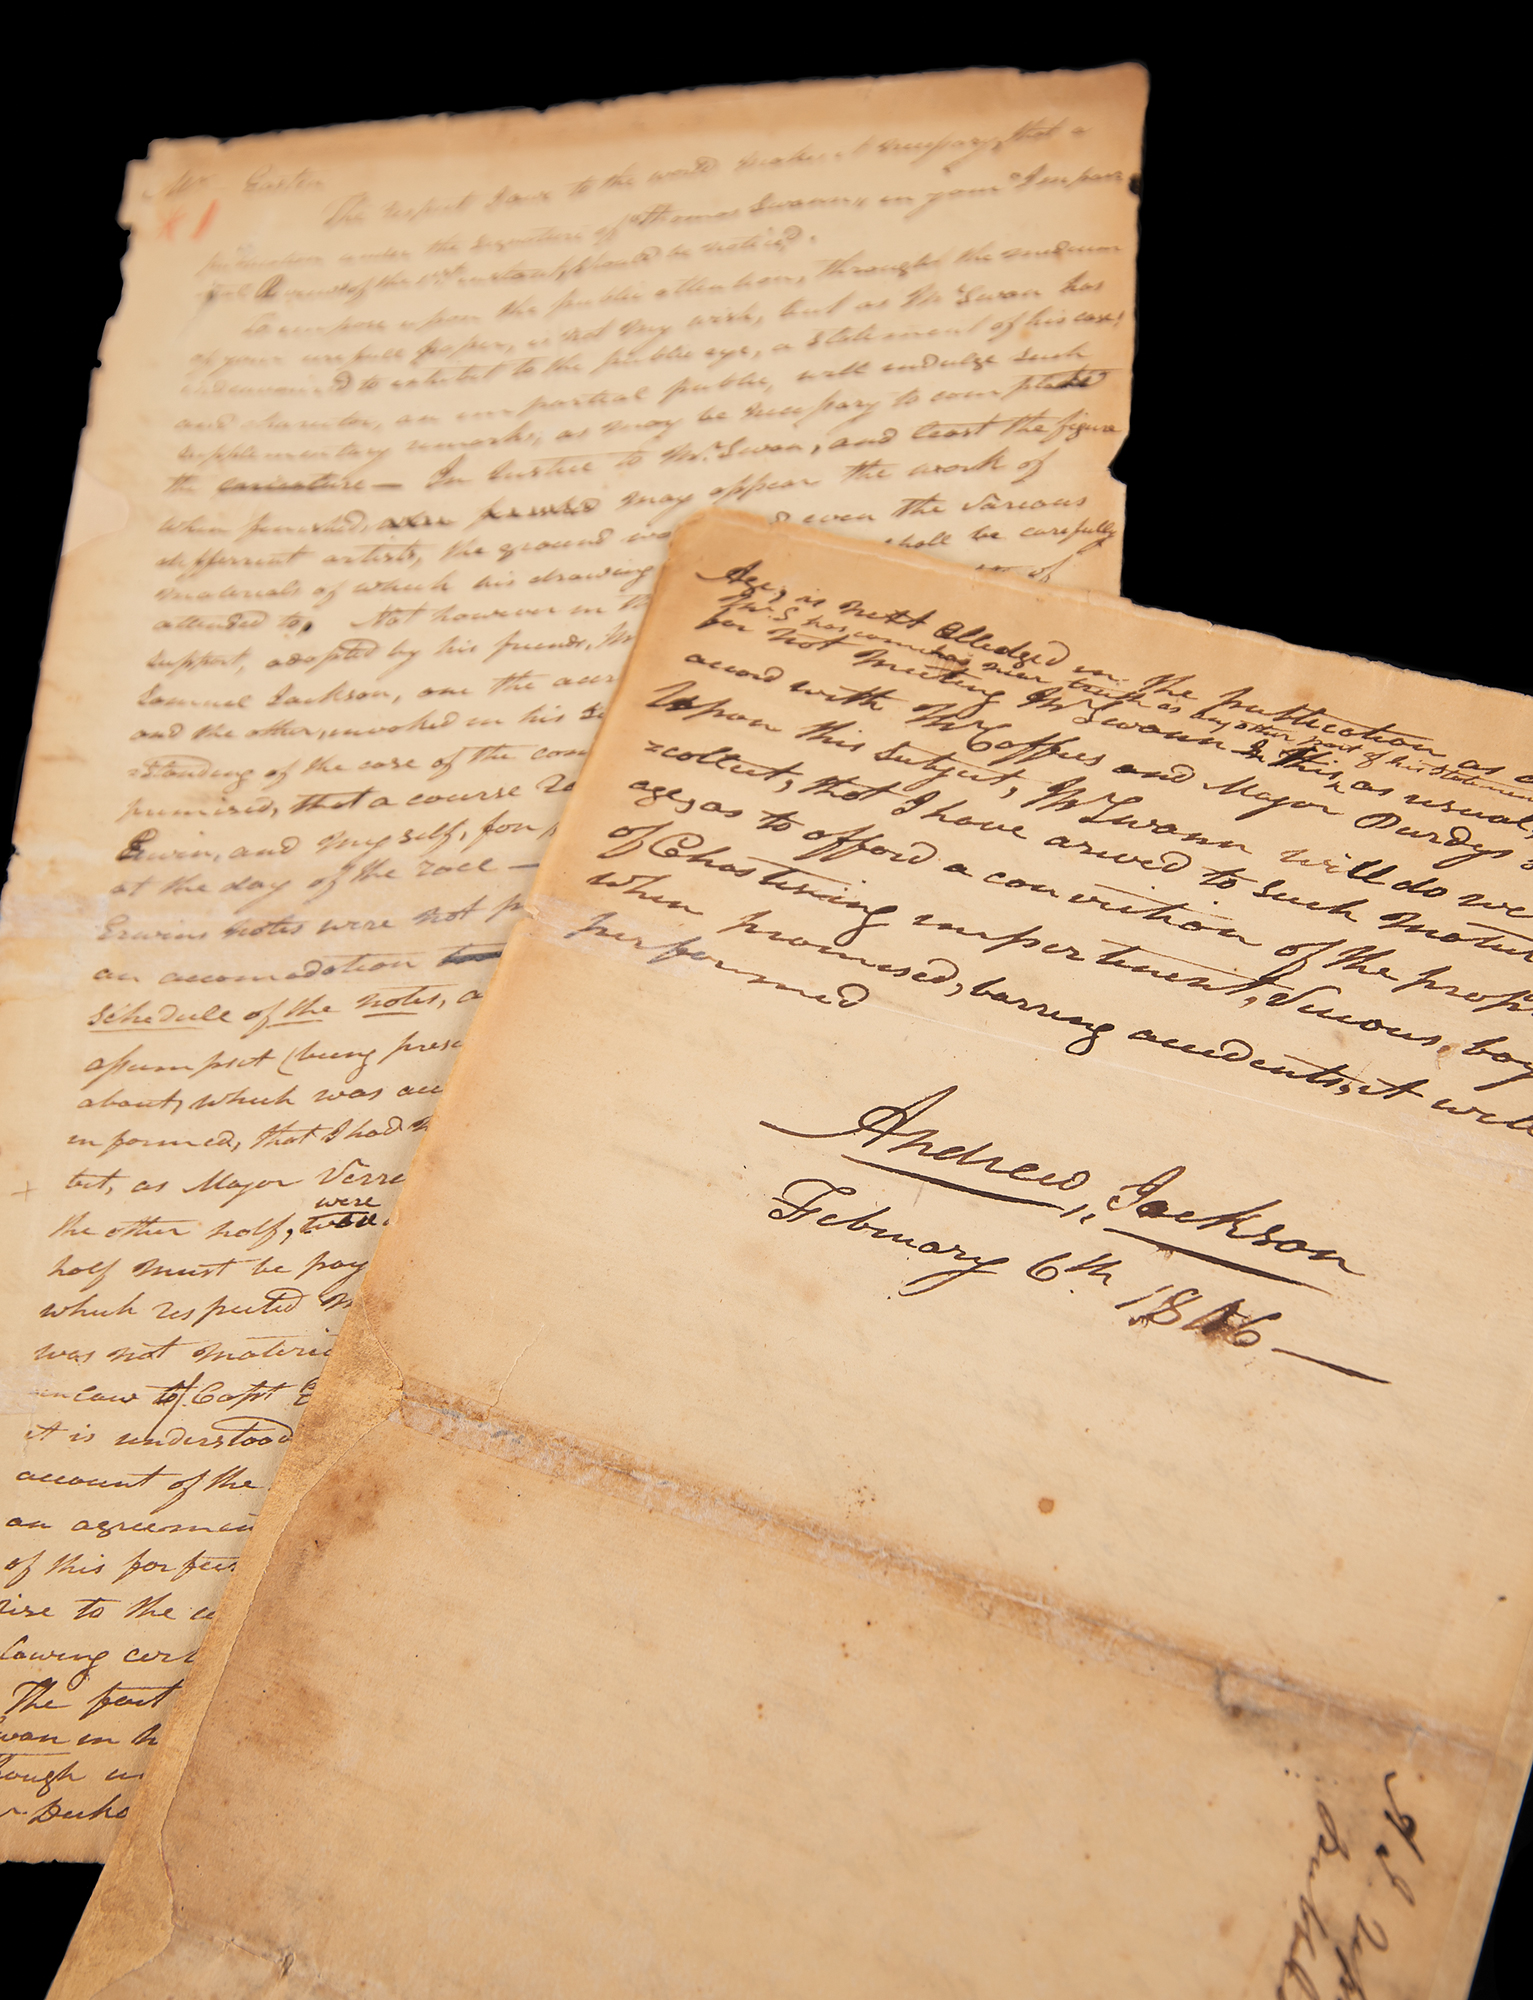 Mr. Eastin
The respect I owe to the world makes it necessary, that a
publication under the signature of "Thomas Swann" in your "Impar
tial Review of the 1st instant, should be noticed.
To impose upon the public attention, through the medium
of your usefull paper, is not my wish, but as Mr Swan has
endeavoured to exhibit to the public eye, a statement of his case,
and character, an impartial public, will indulge such
supplementary remarks, as may be necessary to complete
the caricature — In Justice to Mr. Swan, and least the figure
when finished, may appear the work of
different artists, the ground wo even the various
materials of which his drawing shall be carefully
attended to, Not however in th of
support, adopted by his friends, M
Samuel Jackson, one the
and the other, invoked in his
standing of the case of the con
premised, that a course
Erwin, and myself, for
at the day of the race —
Erwins notes were not p
an accomodation
schedule of the notes, a
assumpsit (being pres
about, which was acc
informed, that I had n
but, as Major Verre
were
the other half,
half must be pay
which respected M
was not materi
in law to Capt E
it is understood
account of the
an agreemen
of this forfeit
rise to the c
lowing cert
The fact
wan in h
hough un
r Dicks
Age, is next alledged in the publication as a
Mr. S has come as near truth as any other part of his statement
for not meeting Mr Swann In this, as usual,
accord with Mr Coffees and Major Purdys
Upon this subject, Mr Swann will do we
recollect, that I have arived to such matur
age, as to afford a conviction of the propr
of Chastising impertinent, Vicious, boy
when promised, barring accidents, it will
performed
Andrew, Jackson
February 6th 1806 —